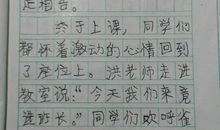 走相告。
终于上课，同学们
都怀着激动的心情回到
了座位上。洪老师走进
教室说：“今天我们来竞
选班长。”同学们欢呼雀